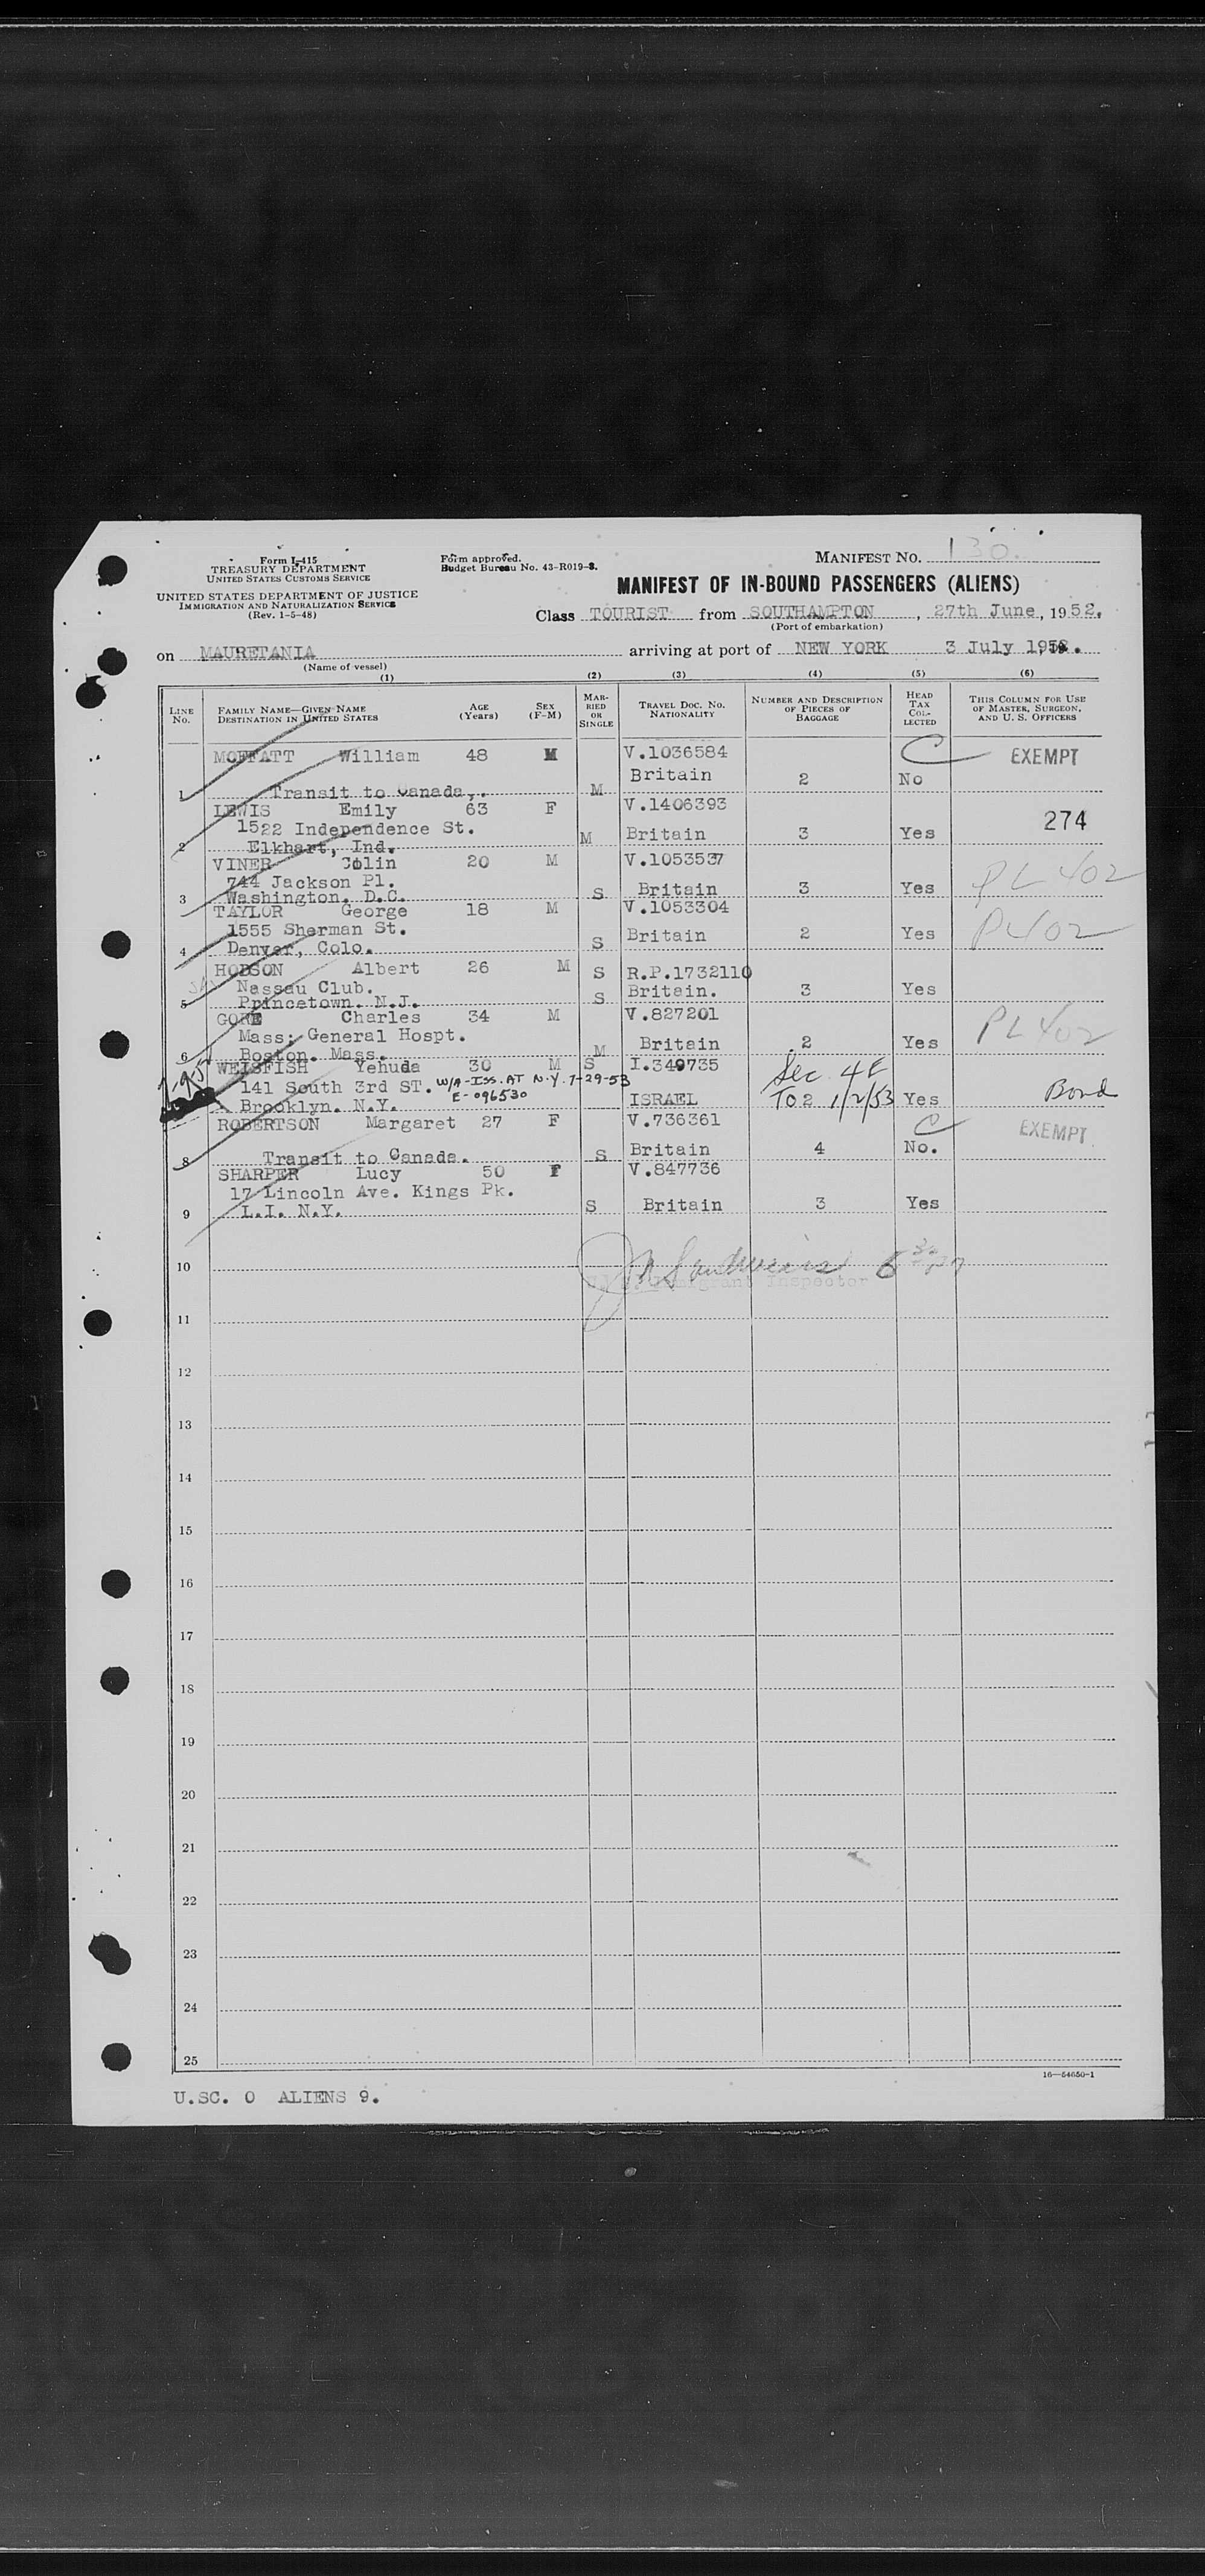 Form I-415
TREASURY DEPARTMENT
UNITED STATES CUSTOMS SERVICE
UNITED STATES DEPARTMENT OF JUSTICE
IMMIGRATION AND NATURALIZATION SERVICE
(Rev. 1-5-48)
Form approved.
Budget Bureau No. 43-R019-3.
MANIFEST NO. 130.
MANIFEST OF IN-BOUND PASSENGERS (ALIENS)
Class TOURIST from SOUTHAMPTON, 27th June, 1952.
(Port of embarkation)
on MAURETANIA arriving at port of NEW YORK 3 July 1952.
(Name of vessel)
(1) (2) (3) (4) (5) (6)
LINE No. FAMILY NAME—GIVEN NAME DESTINATION IN UNITED STATES AGE (Years) SEX (F-M) MARRIED OR SINGLE TRAVEL DOC. NO. NATIONALITY NUMBER AND DESCRIPTION OF PIECES OF BAGGAGE HEAD TAX COLLECTED THIS COLUMN FOR USE OF MASTER, SURGEON, AND U. S. OFFICERS
MOFFATT William 48 M V.1036584 C EXEMPT
Britain 2 No
1 Transit to Canada,. M
LEWIS Emily 63 F V.1406393
1522 Independence St. 274
2 Elkhart, Ind. M Britain 3 Yes
VINER Colin 20 M V.1053537
744 Jackson Pl. PL 402
3 Washington. D.C. S Britain 3 Yes
TAYLOR George 18 M V.1053304
1555 Sherman St. Britain 2 Yes PL 402
4 Denver, Colo. S
HODSON Albert 26 M S R.P.1732110
Nassau Club. Britain. 3 Yes
5 Princetown. N.J. S
GORE Charles 34 M V.827201
Mass: General Hospt. PL 402
6 Boston. Mass. M Britain 2 Yes
WEISFISH Yehuda 30 M S I.349735
141 South 3rd ST. W/A-ISS. AT N.Y. 7-29-53 Sec 4E
E-096530
Brooklyn. N.Y. ISRAEL TO 2 1/2/53 Yes Bond
ROBERTSON Margaret 27 F V.736361 C EXEMPT
Britain 4 No.
8 Transit to Canada. S
SHARPER Lucy 50 F V.847736
17 Lincoln Ave. Kings Pk.
9 L.I. N.Y. S Britain 3 Yes
10
Immigrant Inspector
11
12
13
14
15
16
17
18
19
20
21
22
23
24
25
16—54650-1
U.SC. 0 ALIENS 9.